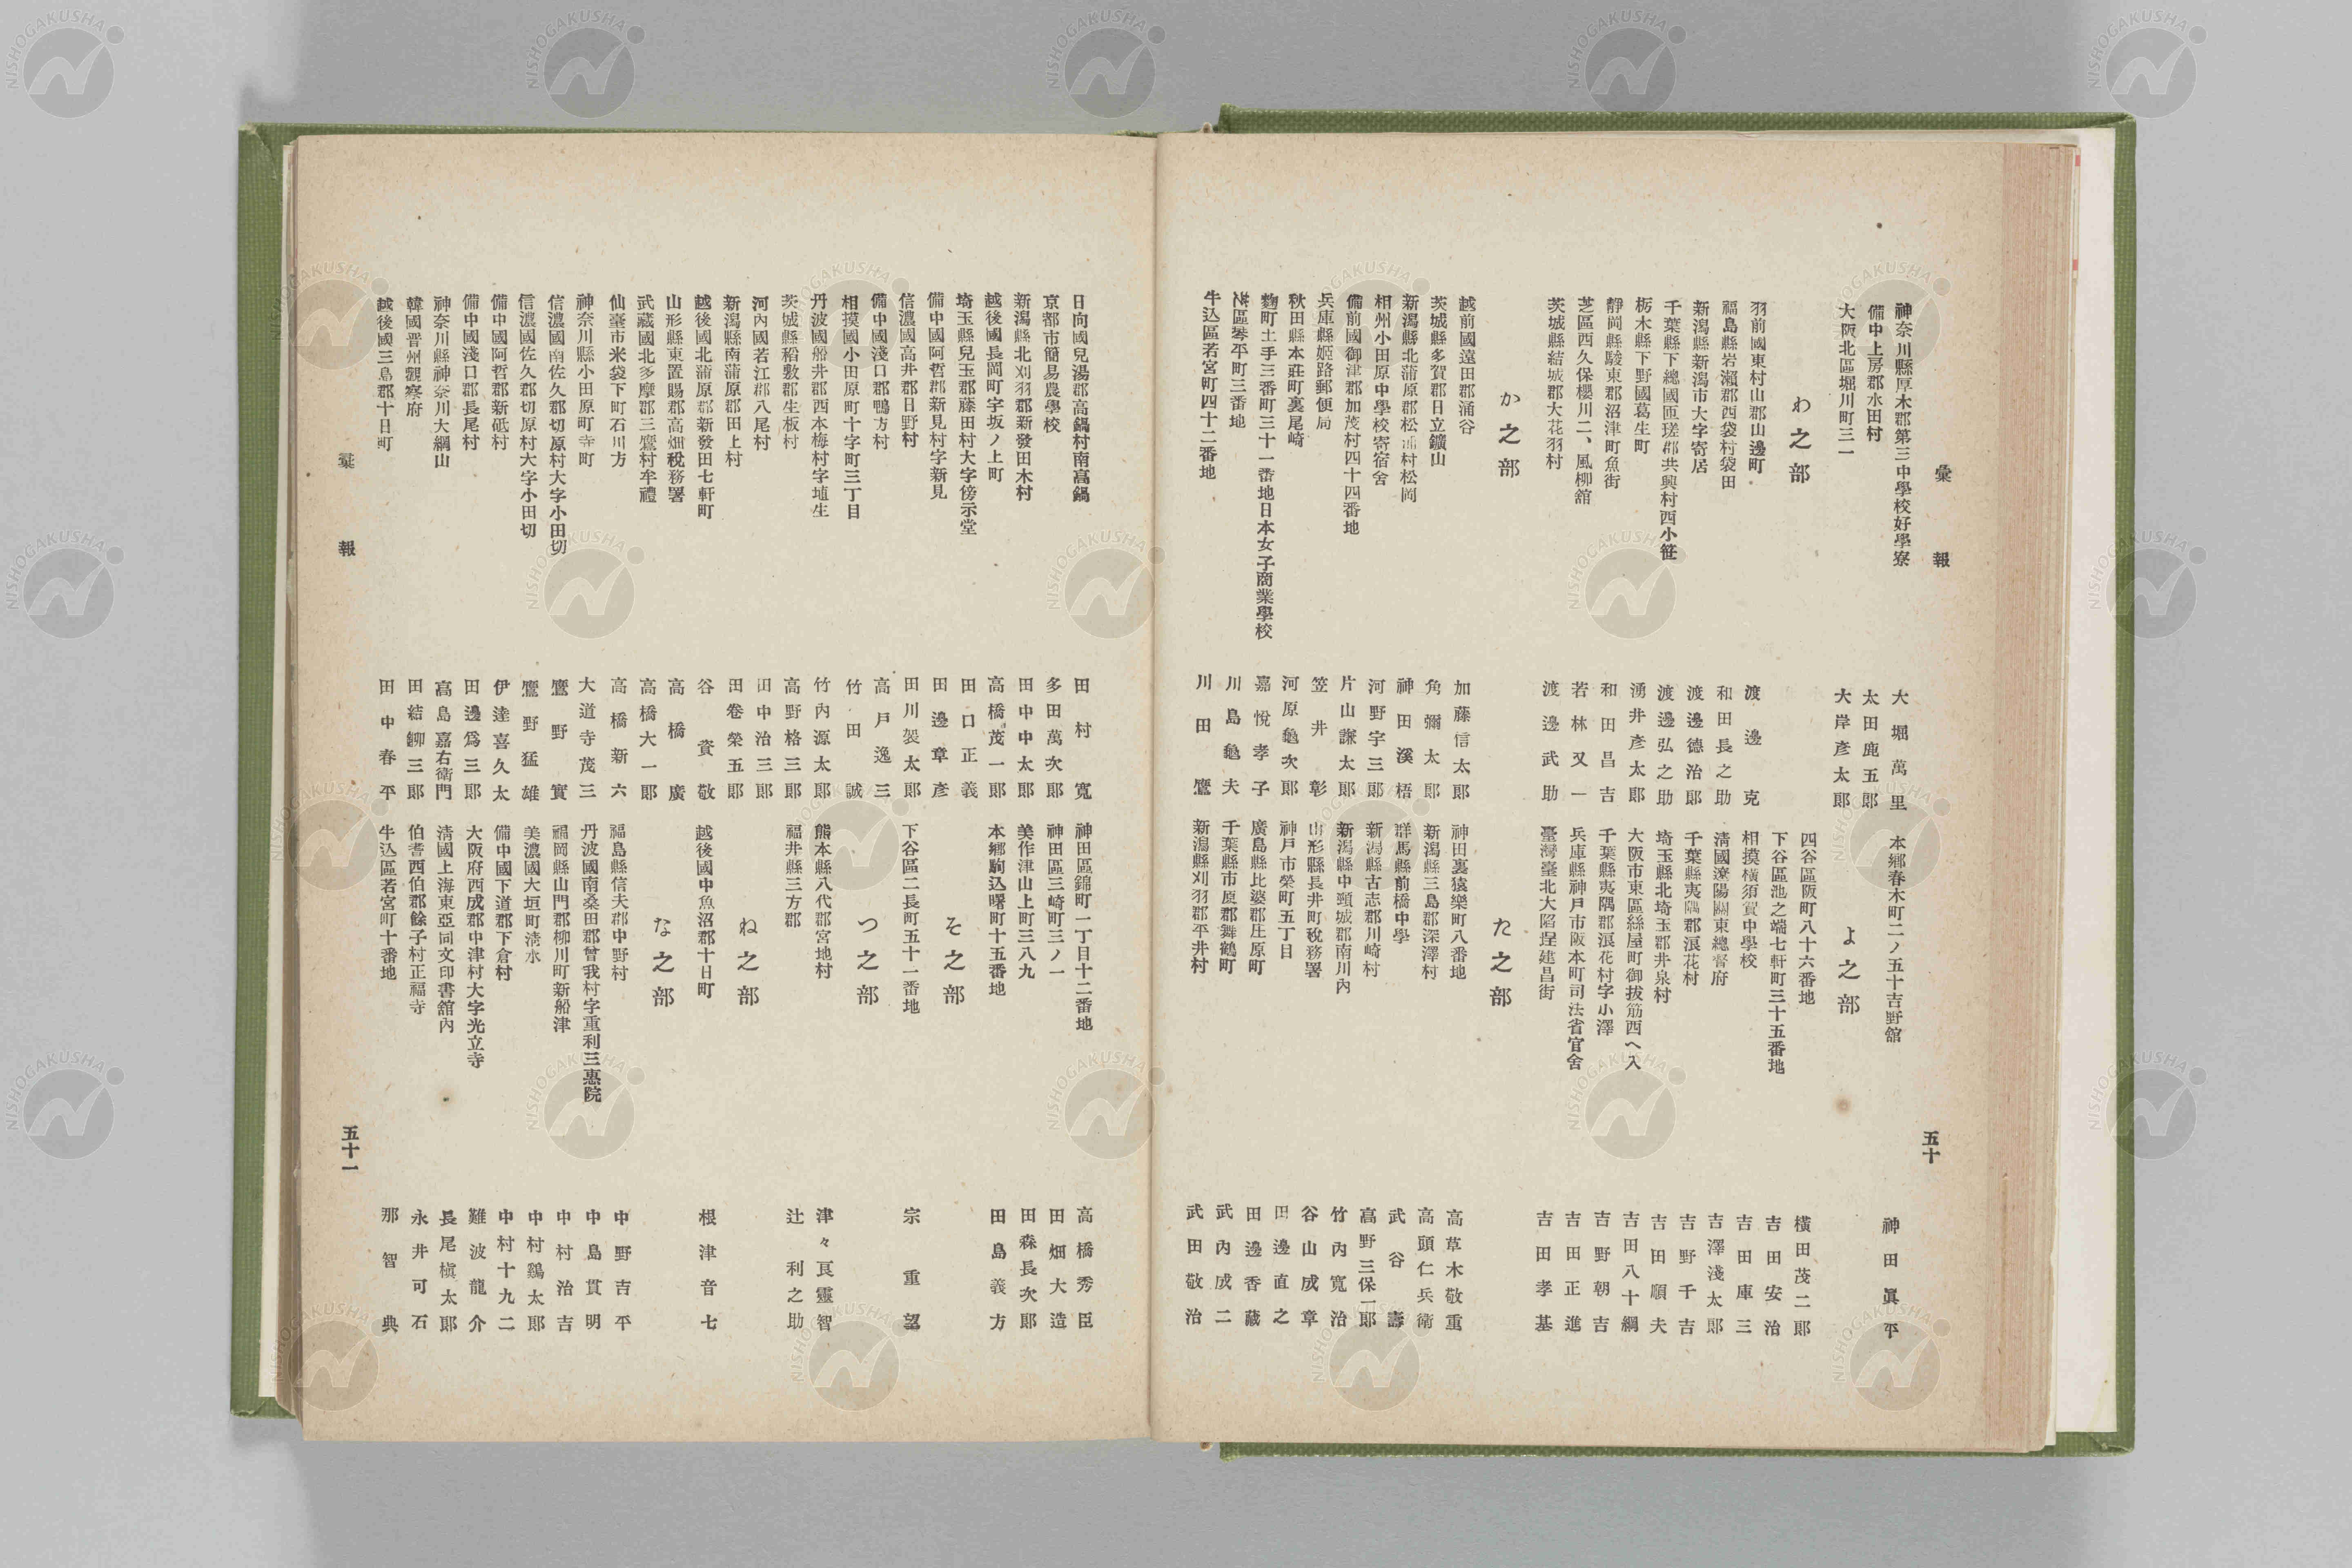 彙報
五十
神奈川縣厚木郡第三中學校好學寮 大堀萬里
備中上房郡水田村 太田鹿五郎
大阪北區堀川町三一 大岸彥太郎
わ之部
羽前國東村山郡山邊町 渡邊克
福島縣岩瀨郡西袋村袋田 和田長之助
新潟縣新潟市大字寄居 渡邊德治郎
千葉縣下總國匝瑳郡共興村西小笹 渡邊弘之助
栃木縣下野國葛生町 湧井彥太郎
靜岡縣駿東郡沼津町魚街 和田昌吉
芝區西久保櫻川二、風柳舘 若林又一
茨城縣結城郡大花羽村 渡邊武助
か之部
越前國遠田郡涌谷 加藤信太郎
茨城縣多賀郡日立鑛山 角彌太郎
新潟縣北蒲原郡松浦村松岡 神田溪梧
相州小田原中學校寄宿舍 河野宇三郎
備前國御津郡加茂村四十四番地 片山謙太郎
兵庫縣姬路郵便局 笠井彰
秋田縣本莊町裏尾崎 河原龜次郎
麴町土手三番町三十一番地日本女子商業學校 嘉悅孝子
芝區琴平町三番地 川島龜夫
牛込區若宮町四十二番地 川田鷹
本鄕春木町二ノ五十吉野舘 神田眞平
よ之部
四谷區阪町八十六番地 橫田茂二郎
下谷區池之端七軒町三十五番地 吉田安治
相摸橫須賀中學校 吉田庫三
淸國遼陽關東總督府 吉澤淺太郎
千葉縣夷隅郡浪花村 吉野千吉
埼玉縣北埼玉郡井泉村 吉田順夫
大阪市東區絲屋町御拔筋西へ入 吉田八十綱
千葉縣夷隅郡浪花村字小澤 吉野朝吉
兵庫縣神戶市阪本町司法省官舍 吉田正進
臺灣臺北大䧟埕建昌街 吉田孝基
た之部
神田裏猿樂町八番地 高草木敬重
新潟縣三島郡深澤村 高頭仁兵衛
群馬縣前橋中學 武谷壽
新潟縣古志郡川崎村 高野三保二郎
新潟縣中頸城郡南川內 竹內寬治
山形縣長井町稅務署 谷山成章
神戶市榮町五丁目 田邊直之
廣島縣比婆郡庄原町 田邊香藏
千葉縣市原郡舞鶴町 武內成二
新潟縣刈羽郡平井村 武田敬治
日向國兒湯郡高鍋村南高鍋 田村寬
京都市簡易農學校 多田萬次郎
新潟縣北刈羽郡新發田木村 田中中太郎
越後國長岡町字坂ノ上町 高橋茂一郎
埼玉縣兒玉郡藤田村大字傍示堂 田口正義
備中國阿哲郡新見村字新見 田邊章彥
信濃國高井郡日野村 田川袈太郎
備中國淺口郡鴨方村 高戶逸三
相摸國小田原町十字町三丁目 竹田誠
丹波國船井郡西本梅村字埴生 竹內源太郎
茨城縣稻敷郡生板村 高野格三郎
河內國若江郡八尾村 田中治三郎
新潟縣南蒲原郡田上村 田卷榮五郎
越後國北蒲原郡新發田七軒町 谷資敬
山形縣東置賜郡高畑稅務署 高橋廣
武藏國北多摩郡三鷹村牟禮 高橋大一郎
仙臺市米袋下町石川方 高橋新六
神奈川縣小田原町寺町 大道寺茂三
信濃國南佐久郡切原村大字小田切 鷹野實
信濃國佐久郡切原村大字小田切 鷹野猛雄
備中國阿哲郡新砥村 伊達喜久太
備中國淺口郡長尾村 田邊爲三郎
神奈川縣神奈川大綱山 高島嘉右衛門
韓國晋州觀察府 田結鉚三郎
越後國三島郡十日町 田中春平
神田區錦町一丁目十二番地 高橋秀臣
神田區三崎町三ノ一 田畑大造
美作津山上町三八九 田森長次郎
本鄕駒込曙町十五番地 田島義方
そ之部
下谷區二長町五十一番地 宗重望
つ之部
熊本縣八代郡宮地村 津々良靈智
福井縣三方郡 辻利之助
ね之部
越後國中魚沼郡十日町 根津音七
な之部
福島縣信夫郡中野村 中野吉平
丹波國南桑田郡曾我村字重利三惠院 中島貫明
福岡縣山門郡柳川町新船津 中村治吉
美濃國大垣町淸水 中村鷄太郎
備中國下道郡下倉村 中村十九二
大阪府西成郡中津村大字光立寺 難波龍介
淸國上海東亞同文印書舘內 長尾槇太郎
伯耆西伯郡餘子村正福寺 永井可石
牛込區若宮町十番地 那智典
彙報
五十一
NISHOGAKUSHA